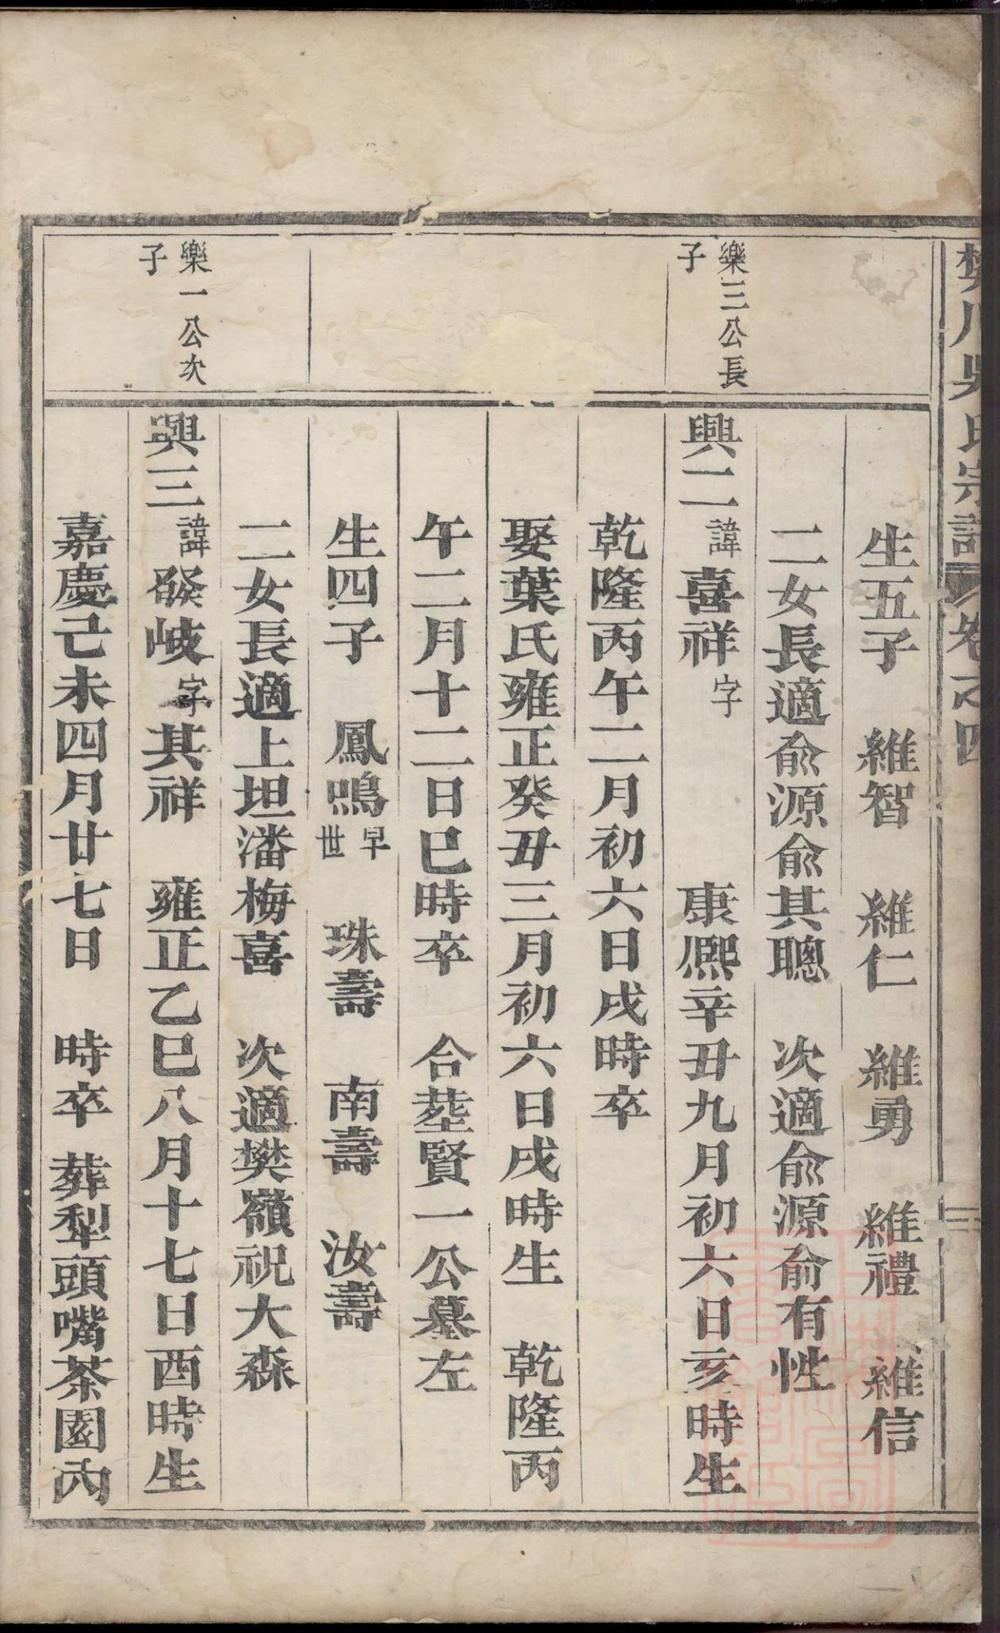 樊川吳氏宗譜 卷之四 三
生五子 維智 維仁 維勇 維禮 維信
二女長適俞源俞其聰 次適俞源俞有性
樂三公長
子
興二諱喜祥字 康熙辛丑九月初六日亥時生
乾隆丙午二月初六日戌時卒
娶葉氏雍正癸丑三月初六日戌時生 乾隆丙
午二月十二日巳時卒 合塟賢一公墓左
生四子 鳳鳴早世 珠壽 南壽 汝壽
二女長適上坦潘梅喜 次適樊嶺祝大森
樂一公次
子
興三諱發岐字其祥 雍正乙巳八月十七日酉時生
嘉慶己未四月廿七日 時卒 葬犁頭嘴茶園內